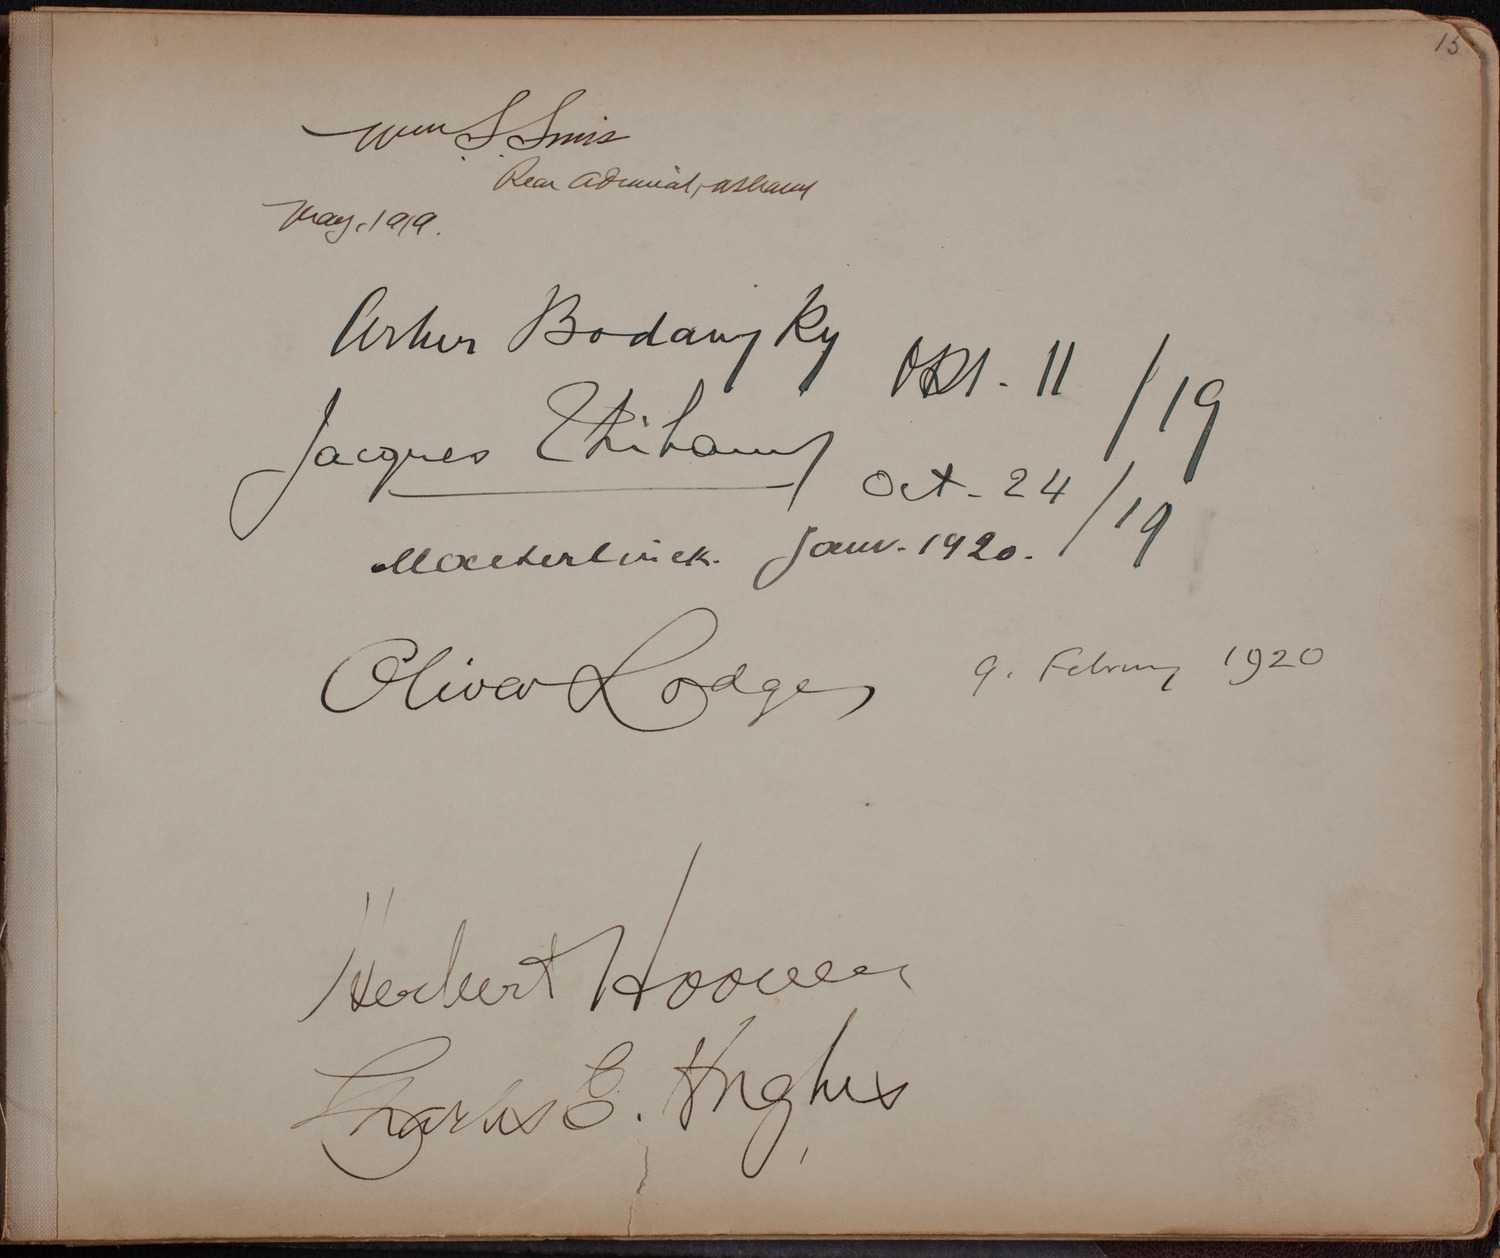 15
Wm S Sims
Rear Admiral, U.S. Navy
May, 1919.
Artur Bodanzky Okt. 11/19
Jacques Thibaud Oct. 24/19
Maeterlinck. Janv. 1920.
Oliver Lodge, 9. February 1920
Herbert Hoover
Charles E. Hughes